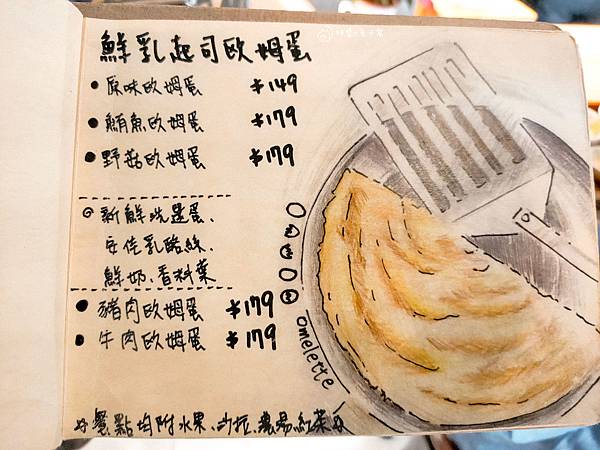 鮮乳起司歐姆蛋
• 原味歐姆蛋 $149
• 鮪魚歐姆蛋 $179
• 野菇歐姆蛋 $179
新鮮洗選蛋、
安佳乳酪絲、
鮮奶、香料葉
• 豬肉歐姆蛋 $179
• 牛肉歐姆蛋 $179
omelette
餐點均附水果、沙拉、農場紅茶